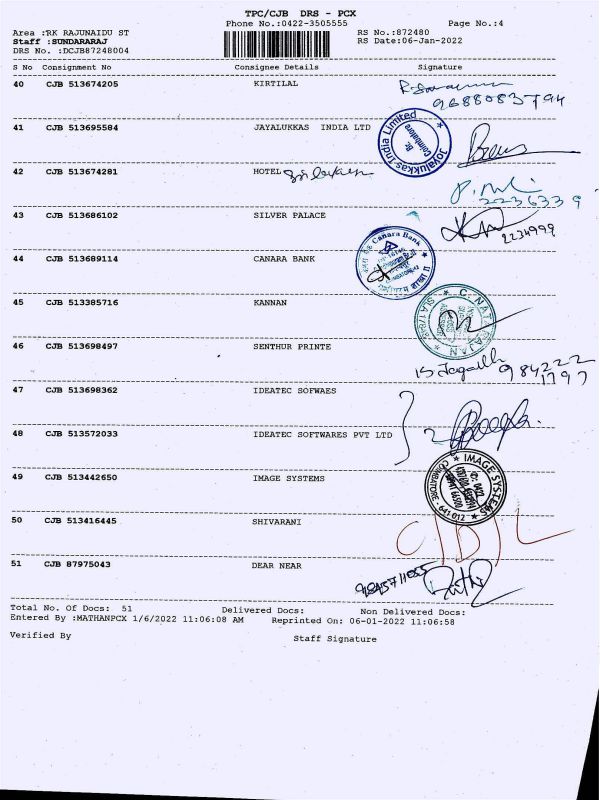 TPC/CJB DRS - PCX
Phone No.:0422-3505555 Page No.:4
Area :RK RAJUNAIDU ST RS No.:872480
Staff :SUNDARARAJ RS Date:06-Jan-2022
DRS No. :DCJB87248004
S No Consignment No Consignee Details Signature
40 CJB 513674205 KIRTILAL
9688083794
41 CJB 513695584 JAYALUKKAS INDIA LTD
Joyalukkas India Limited
Coimbatore
42 CJB 513674281 HOTEL
2236339
43 CJB 513686102 SILVER PALACE
2234999
44 CJB 513689114 CANARA BANK
Canara Bank
45 CJB 513385716 KANNAN
C. NATARAJAN
46 CJB 513698497 SENTHUR PRINTE
984222
1797
47 CJB 513698362 IDEATEC SOFWAES
48 CJB 513572033 IDEATEC SOFTWARES PVT LTD 2
49 CJB 513442650 IMAGE SYSTEMS
IMAGE SYSTEMS
COIMBATORE - 641 012
50 CJB 513416445 SHIVARANI
51 CJB 87975043 DEAR NEAR
Total No. Of Docs: 51 Delivered Docs: Non Delivered Docs:
Entered By :MATHANPCX 1/6/2022 11:06:08 AM Reprinted On: 06-01-2022 11:06:58
Verified By Staff Signature